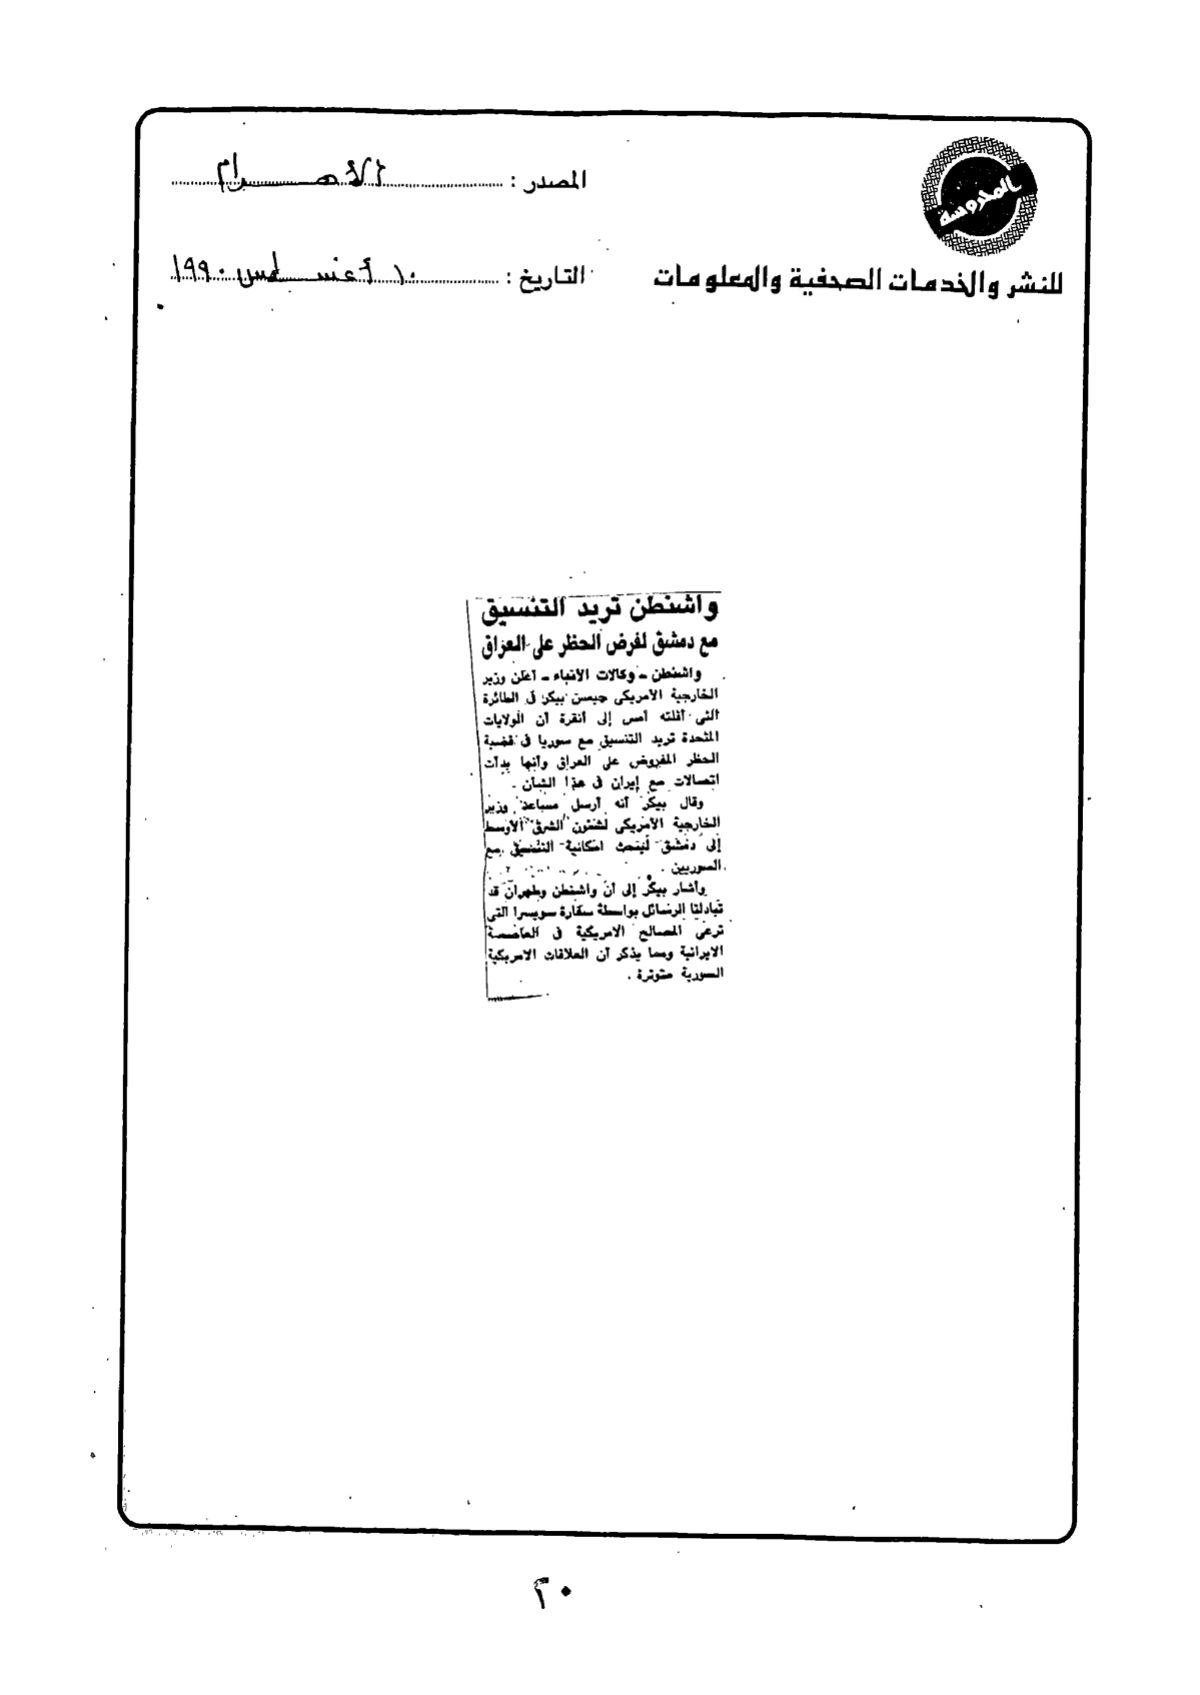 المحروسة
للنشر والخدمات الصحفية والمعلومات
المصدر : الأهرام
التاريخ : ١٠ أغسطس ١٩٩٠
واشنطن تريد التنسيق
مع دمشق لفرض الحظر على العراق
واشنطن - وكالات الأنباء - أعلن وزير
الخارجية الأمريكى جيمس بيكر فى الطائرة
التى أقلته أمس إلى أنقرة أن الولايات
المتحدة تريد التنسيق مع سوريا فى قضية
الحظر المفروض على العراق وأنها بدأت
اتصالات مع إيران فى هذا الشأن .
وقال بيكر أنه أرسل مساعد وزير
الخارجية الأمريكى لشئون الشرق الأوسط
إلى دمشق لبحث امكانية التنسيق مع
السوريين .
وأشار بيكر إلى أن واشنطن وطهران قد
تبادلتا الرسائل بواسطة سفارة سويسرا التى
ترعى المصالح الامريكية فى العاصمة
الايرانية ومما يذكر أن العلاقات الامريكية
السورية متوترة .
٢٠